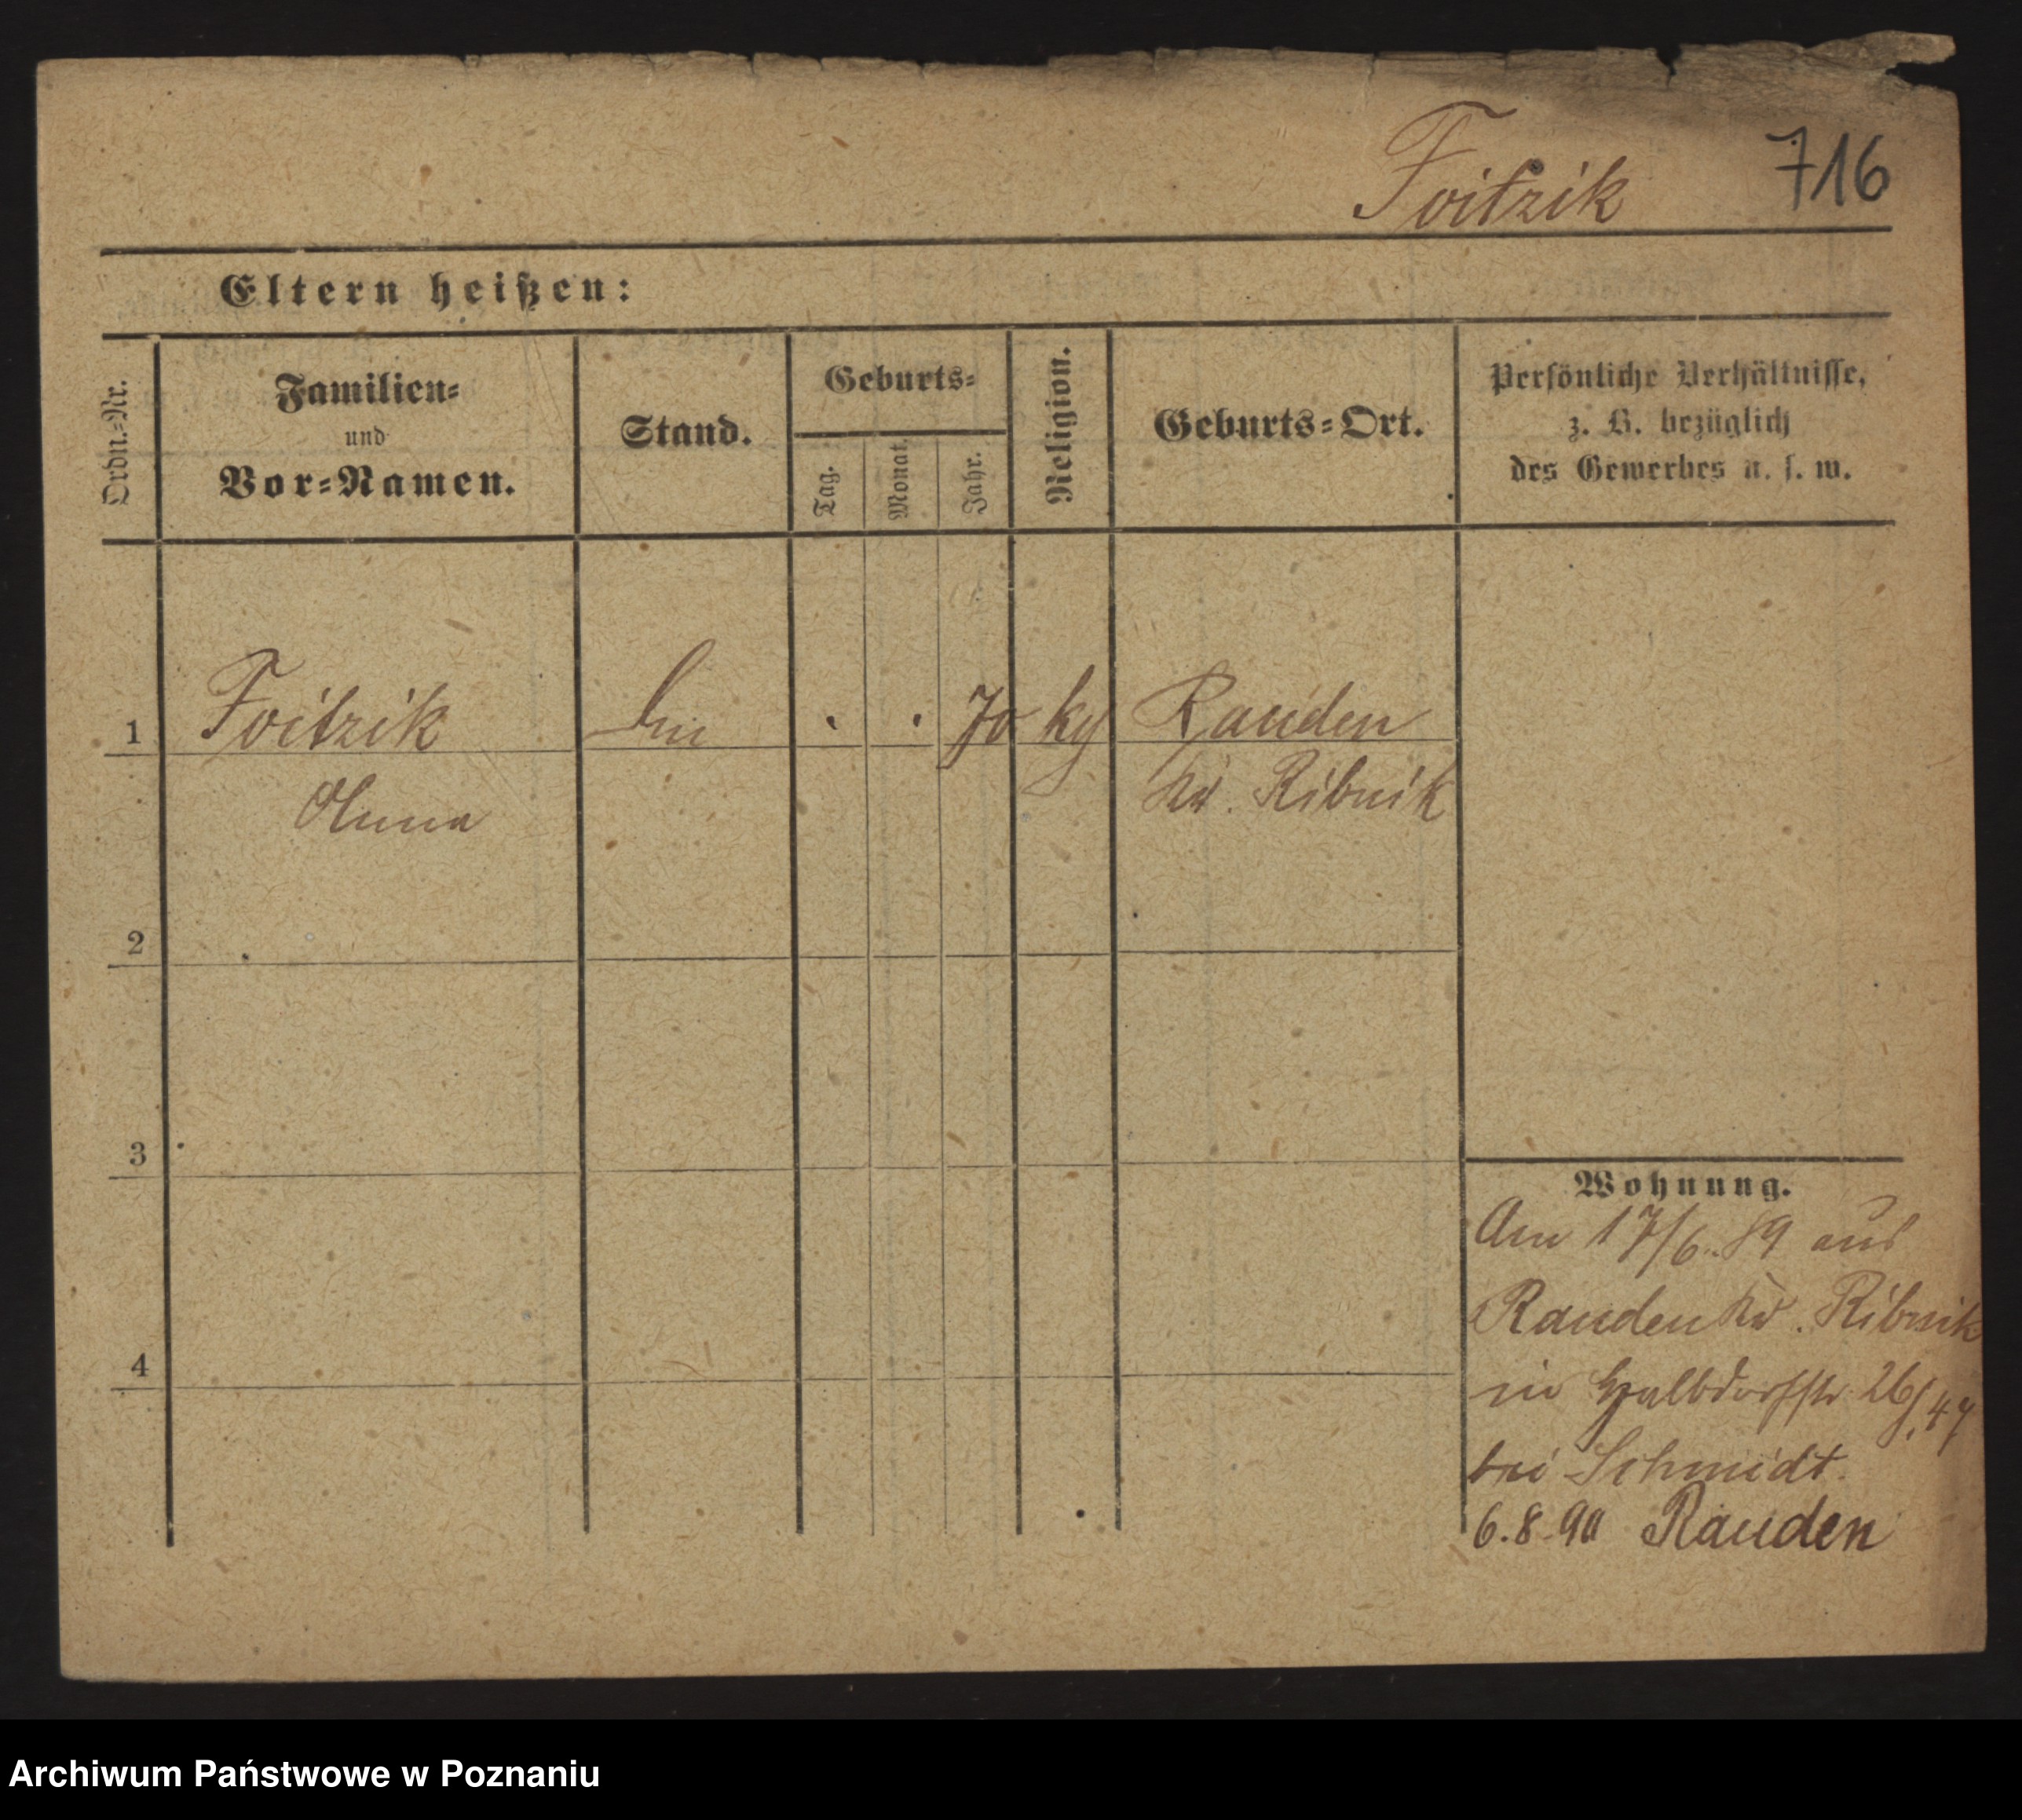 Foitzik 716
Eltern heißen:
Ordn.-Nr.
Familien-
und
Vor-Namen.
Stand.
Geburts-
Tag.
Monat.
Jahr.
Religion.
Geburts-Ort.
Persönliche Verhältnisse,
z. B. bezüglich
des Gewerbes u. s. w.
1 Foitzik 70 Rauden
Anna Kr. Ribnik
2
3
4
Wohnung.
Am 17/6. 89 aus
Rauden Kr. Ribnik
in Halbdorfstr. 26/
bei Schmidt.
6.8.90 Rauden
Archiwum Państwowe w Poznaniu